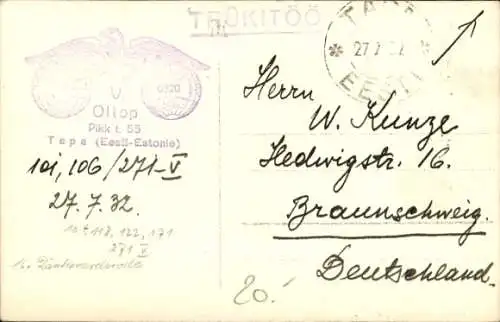 TRÜKITÖÖ
TAPA
27.7.32
EESTI
V
Ollop
Pikk t. 55
Tapa (Eesti-Estonie)
101, 106/271-V
27.7.32.
118, 122, 171
271 V
20.-
Herrn
W. Kunze
Hedwigstr. 16.
Braunschweig.
Deutschland.